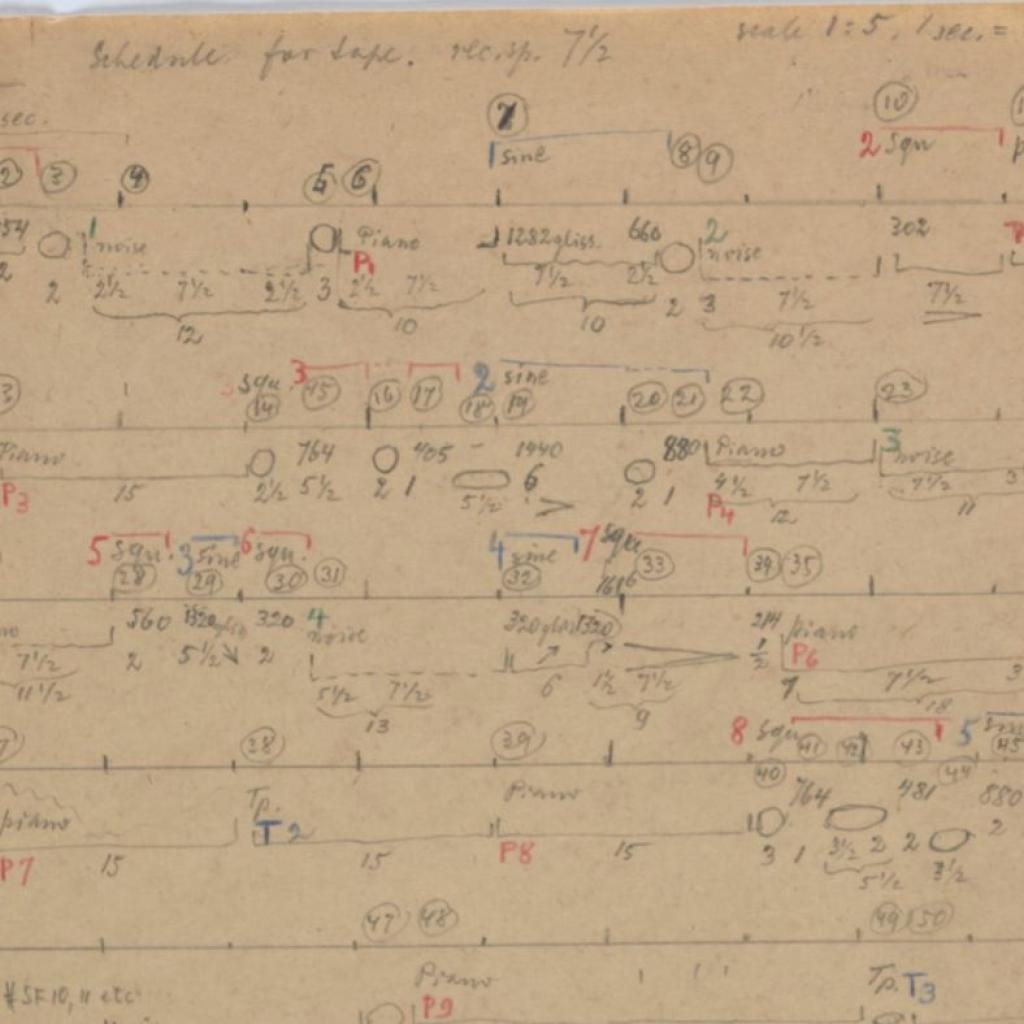 Schedule for tape. rec.sp. 7½ scale 1:5, 1 sec. =
sec. 7 10
2 3 4 5 6 1 sine 8 9 2 squ
2 1 noise Piano 1282 gliss. 660 2 noise 302
2 2½ 7½ 2½ 3 P1 2½ 7½ 7½ 2½ 2 3 7½ 7½
12 10 10 10½
squ. 3 2 sine
14 15 16 17 18 19 20 21 22 23
Piano 764 405 - 1440 880 Piano 3 noise
P3 15 2½ 5½ 2 1 5½ 6 2 1 P4 4½ 7½ 7½ 3
12 11
5 squ. 3 sine 6 squ. 4 sine 7 squ
28 29 30 31 32 33 34 35
560 1320 gliss 320 4 noise 320 gliss 1320 214 piano
7½ 2 5½ 2 5½ 7½ 6 1½ 7½ ½ P6 7 7½ 3
11½ 13 9 18
8 squ 5
38 39 40 41 42 43 44 45
piano Tp. Piano 764 481 880
P7 15 T2 15 P8 15 3 1 3½ 2 2 3½ 2
5½
47 48 49 50
SF10, 11 etc Piano P9 Tp. T3